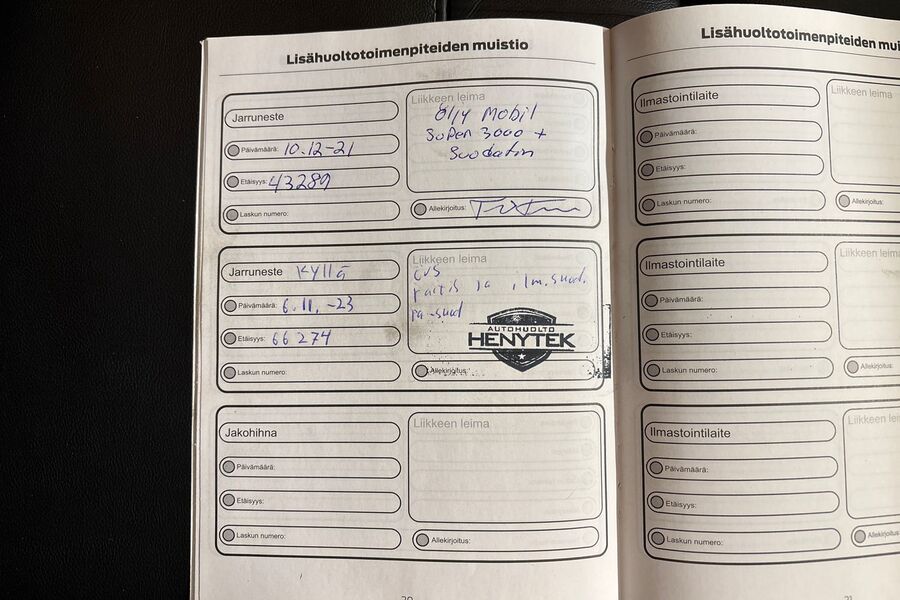 Lisähuoltotoimenpiteiden muistio
Jarruneste
Päivämäärä: 10.12-21
Etäisyys: 43289
Laskun numero:
Liikkeen leima
Öljy Mobil
Super 3000 +
Suodatin
Allekirjoitus:
Jarruneste Kyllä
Päivämäärä: 6.11.-23
Etäisyys: 66274
Laskun numero:
Liikkeen leima
ja ilm.suod.
pa-suod
AUTOHUOLTO
HENYTEK
Allekirjoitus:
Jakohihna
Päivämäärä:
Etäisyys:
Laskun numero:
Liikkeen leima
Allekirjoitus:
Lisähuoltotoimenpiteiden mui
Ilmastointilaite
Päivämäärä:
Etäisyys:
Laskun numero:
Liikkeen leima
Allekirjoitus:
Ilmastointilaite
Päivämäärä:
Etäisyys:
Laskun numero:
Liikkeen leima
Allekirjoitus:
Ilmastointilaite
Päivämäärä:
Etäisyys:
Laskun numero:
Liikkeen leima
Allekirjoitus: